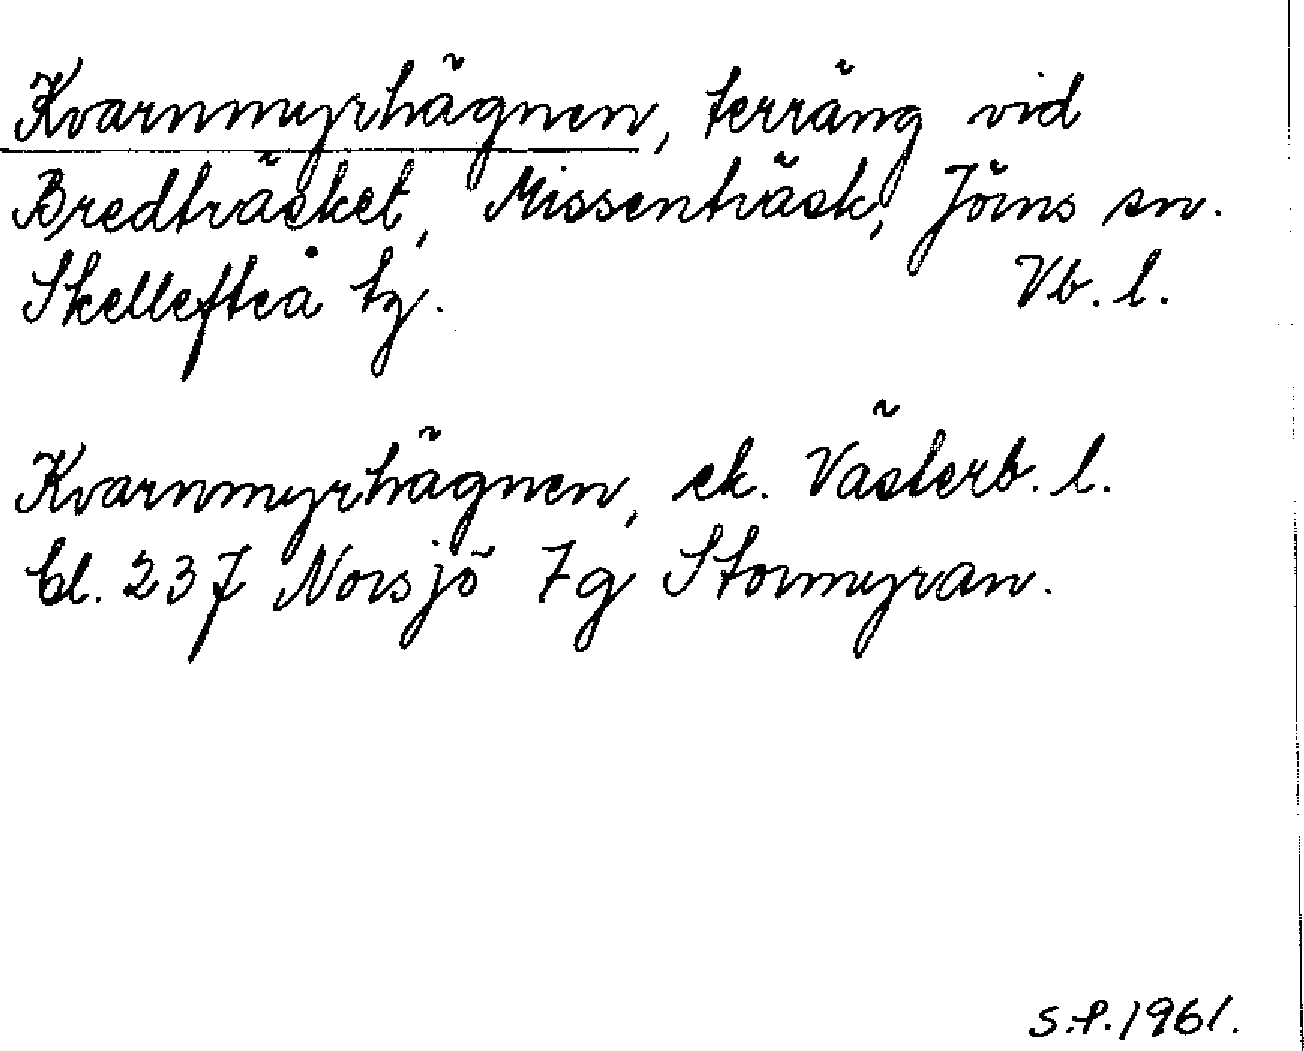 Kvarnmyrhägnen, terräng vid
Bredträsket, Missenträsk, Jörns sn.
Skellefteå tg. Vb. l.
Kvarnmyrhägnen, ek. Västerb. l.
bl. 237 Norsjö 7g Stormyran.
S.P. 1961.